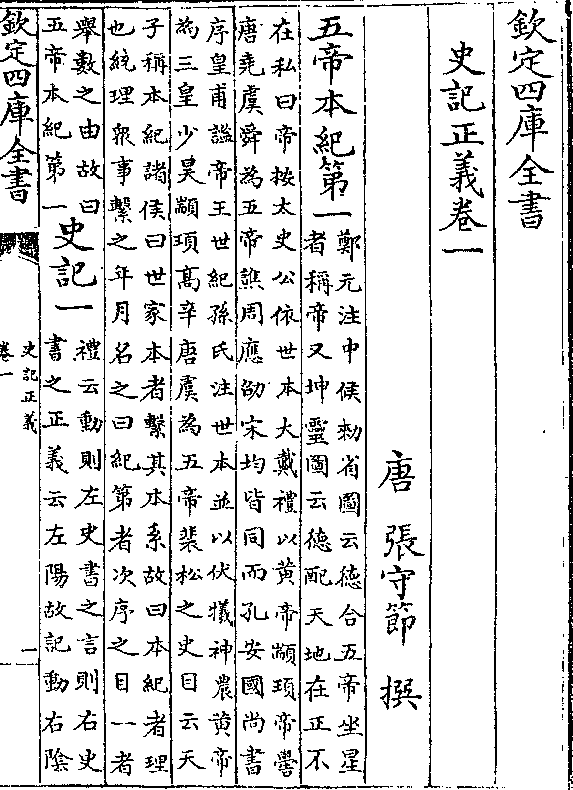 欽定四庫全書
史記正義卷一
唐 張守節 撰
五帝本紀第一
鄭元注中候勑省圖云德合五帝坐星
者稱帝又坤靈圖云德配天地在正不
在私曰帝按太史公依世本大戴禮以黄帝顓頊帝嚳
唐堯虞舜為五帝譙周應劭宋均皆同而孔安國尚書
序皇甫謐帝王世紀孫氏注世本並以伏犧神農黄帝
為三皇少昊顓頊髙辛唐虞為五帝裴松之史目云天
子稱本紀諸侯曰世家本者繫其本系故曰本紀者理
也統理衆事繫之年月名之曰紀第者次序之目一者
舉數之由故曰
五帝本紀第一
史記一
禮云動則左史書之言則右史
書之正義云左陽故記動右陰
欽定四庫全書
史記正義
卷一
一